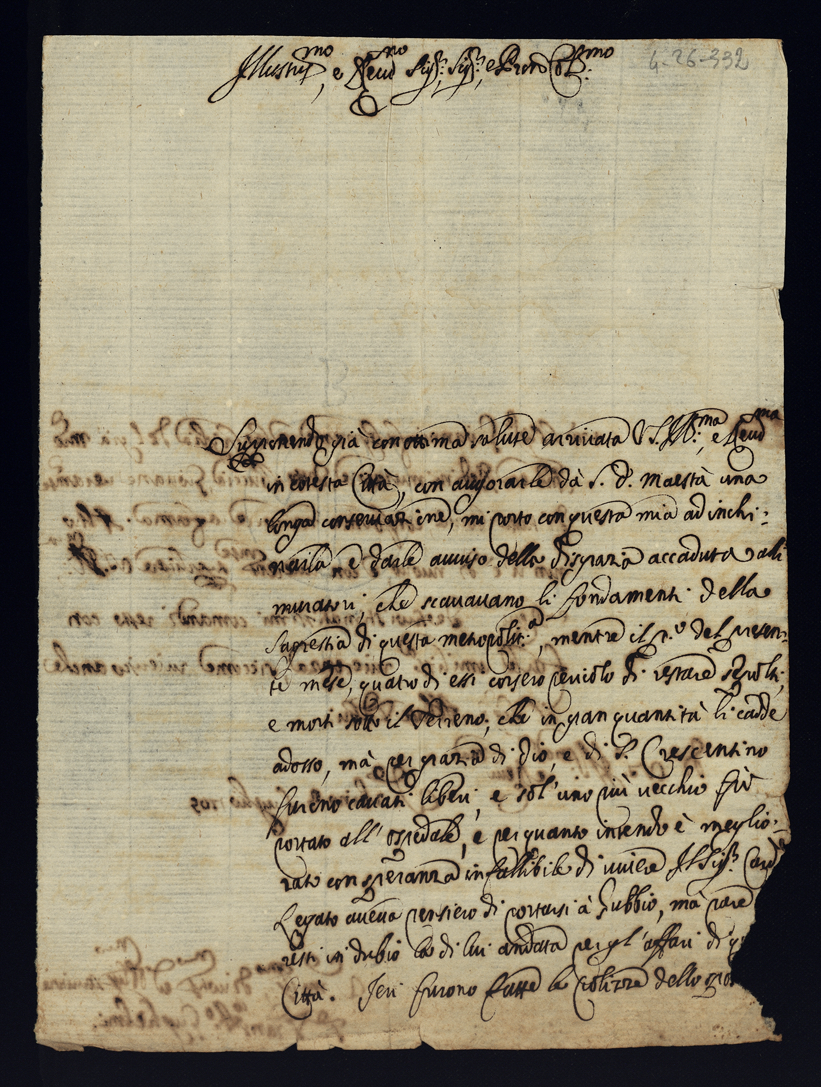 4-26-332
Illustr.mo, e Rev.mo Sig.r, Sig.r, e Pron Col.mo
Supponendo già con ottima salute arrivata V.S. Ill.ma, e Rev.ma
in cotesta Città, con augorarle dà S. D. Maestà una
longa conservazione, mi porto con questa mia ad inchi=
narla e darle avviso della disgrazia accaduta alli
muratori, che scavavano li fondamenti della
sagrestia di questa metropolit.a, mentre il p.o del presen=
te mese, quatro di essi corsero pericolo di restare sepolti,
e morti sotto il Terreno, che in gran quantità li cadde
adosso, mà per grazia di Dio, e di S. Crescentino
furono cavati liberi, e sol'uno più vecchio fù
portato all'ospedale, e per quanto intendo è meglio=
rato con speranza infallibile di vivere Il Sig.r Card
Legato aveva pensiero di portarsi à Gubbio, mà pare
resti in dubio la di lui andata per gl'affari di
Città. Ieri furono fatte le polizze dello
B